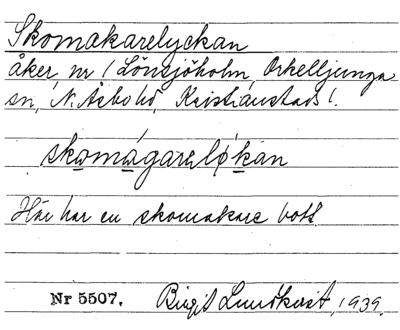 Skomakarelyckan
åker, nr 1 Lönsjöholm, Örkelljunga
sn, N. Åsbo hd, Kristianstads l.
skomágarelø̀kan
Här har en skomakare bott
Nr 5507. Birgit Lundkvist, 1939.